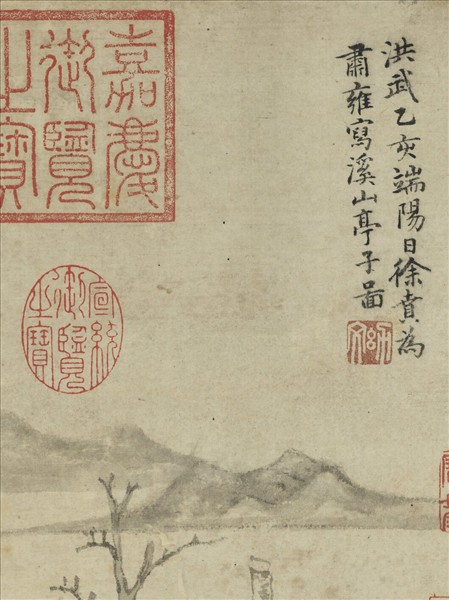 洪武乙亥端陽日徐賁為
肅雍寫溪山亭子啚
幼文
嘉慶
御覽
之寶
宣統
御覽
之寶